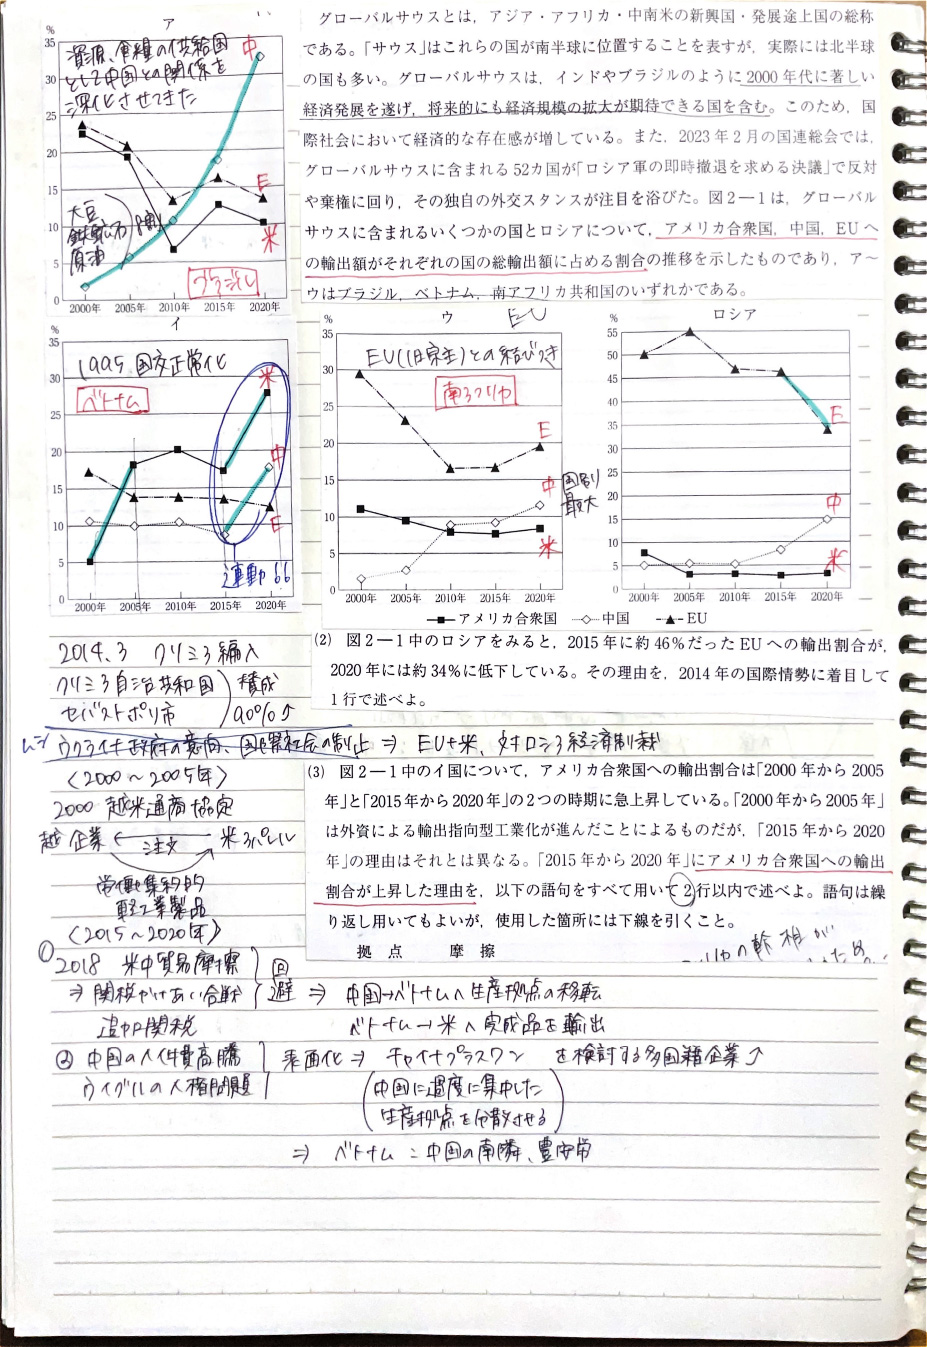 グローバルサウスとは，アジア・アフリカ・中南米の新興国・発展途上国の総称
である。「サウス」はこれらの国が南半球に位置することを表すが，実際には北半球
の国も多い。グローバルサウスは，インドやブラジルのように2000年代に著しい
経済発展を遂げ，将来的にも経済規模の拡大が期待できる国を含む。このため，国
際社会において経済的な存在感が増している。また，2023年2月の国連総会では，
グローバルサウスに含まれる52カ国が「ロシア軍の即時撤退を求める決議」で反対
や棄権に回り，その独自の外交スタンスが注目を浴びた。図2―1は，グローバル
サウスに含まれるいくつかの国とロシアについて，アメリカ合衆国，中国，EUへ
の輸出額がそれぞれの国の総輸出額に占める割合の推移を示したものであり，ア～
ウはブラジル，ベトナム，南アフリカ共和国のいずれかである。
ア
%
資源、食糧の供給国
として中国との関係を
深化させてきた
中
35
30
25
20
15
10
5
0
E
米
大豆
鉄鉱石
原油
ブラジル
2000年 2005年 2010年 2015年 2020年
イ
%
1995 国交正常化
ベトナム
米
中
E
35
30
25
20
15
10
5
0
連動
2000年 2005年 2010年 2015年 2020年
ウ
EU
%
EU(旧宗主)との結びつき
南アフリカ
E
中
国別
最大
米
35
30
25
20
15
10
5
0
2000年 2005年 2010年 2015年 2020年
ロシア
%
55
50
45
40
35
30
25
20
15
10
5
0
E
中
米
2000年 2005年 2010年 2015年 2020年
アメリカ合衆国 中国 EU
(2) 図2―1中のロシアをみると，2015年に約46％だったEUへの輸出割合が，
2020年には約34％に低下している。その理由を，2014年の国際情勢に着目して
1行で述べよ。
2014.3 クリミア編入
クリミア自治共和国
セバストポリ市
賛成
90%↑
ウクライナ政府の意向、国際社会の制止 ⇒ EU+米、対ロシア経済制裁
(3) 図2―1中のイ国について，アメリカ合衆国への輸出割合は「2000年から2005
年」と「2015年から2020年」の2つの時期に急上昇している。「2000年から2005年」
は外資による輸出指向型工業化が進んだことによるものだが，「2015年から2020
年」の理由はそれとは異なる。「2015年から2020年」にアメリカ合衆国への輸出
割合が上昇した理由を，以下の語句をすべて用いて2行以内で述べよ。語句は繰
り返し用いてもよいが，使用した箇所には下線を引くこと。
拠点 摩擦
〈2000～2005年〉
2000 越米通商協定
越企業 ← 注文 米アパレル
労働集約的
軽工業製品
〈2015～2020年〉
① 2018 米中貿易摩擦
⇒ 関税かけあい合戦
追加関税
回避 ⇒ 中国→ベトナムへ生産拠点の移転
ベトナム→米へ完成品を輸出
② 中国の人件費高騰
ウイグルの人権問題
表面化 ⇒ チャイナプラスワン を検討する多国籍企業↑
(中国に過度に集中した
生産拠点を分散させる)
⇒ ベトナム：中国の南隣、豊安労